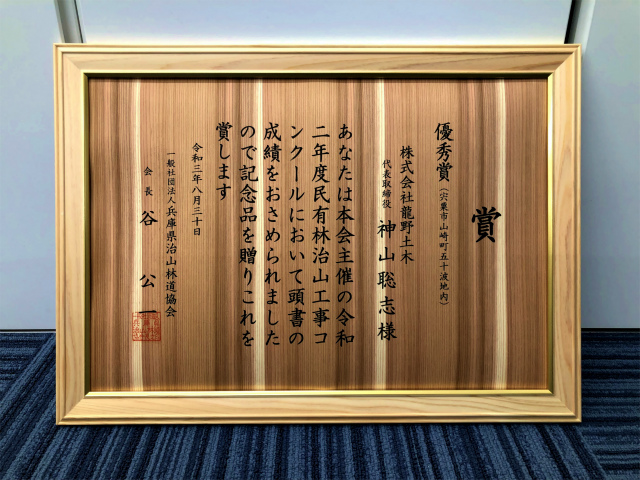 賞
優秀賞（宍粟市山崎町五十波地内）
株式会社龍野土木
代表取締役 神山聡志様
あなたは本会主催の令和
二年度民有林治山工事コ
ンクールにおいて頭書の
成績をおさめられました
ので記念品を贈りこれを
賞します
令和三年八月三十日
一般社団法人兵庫県治山林道協会
会長 谷公一